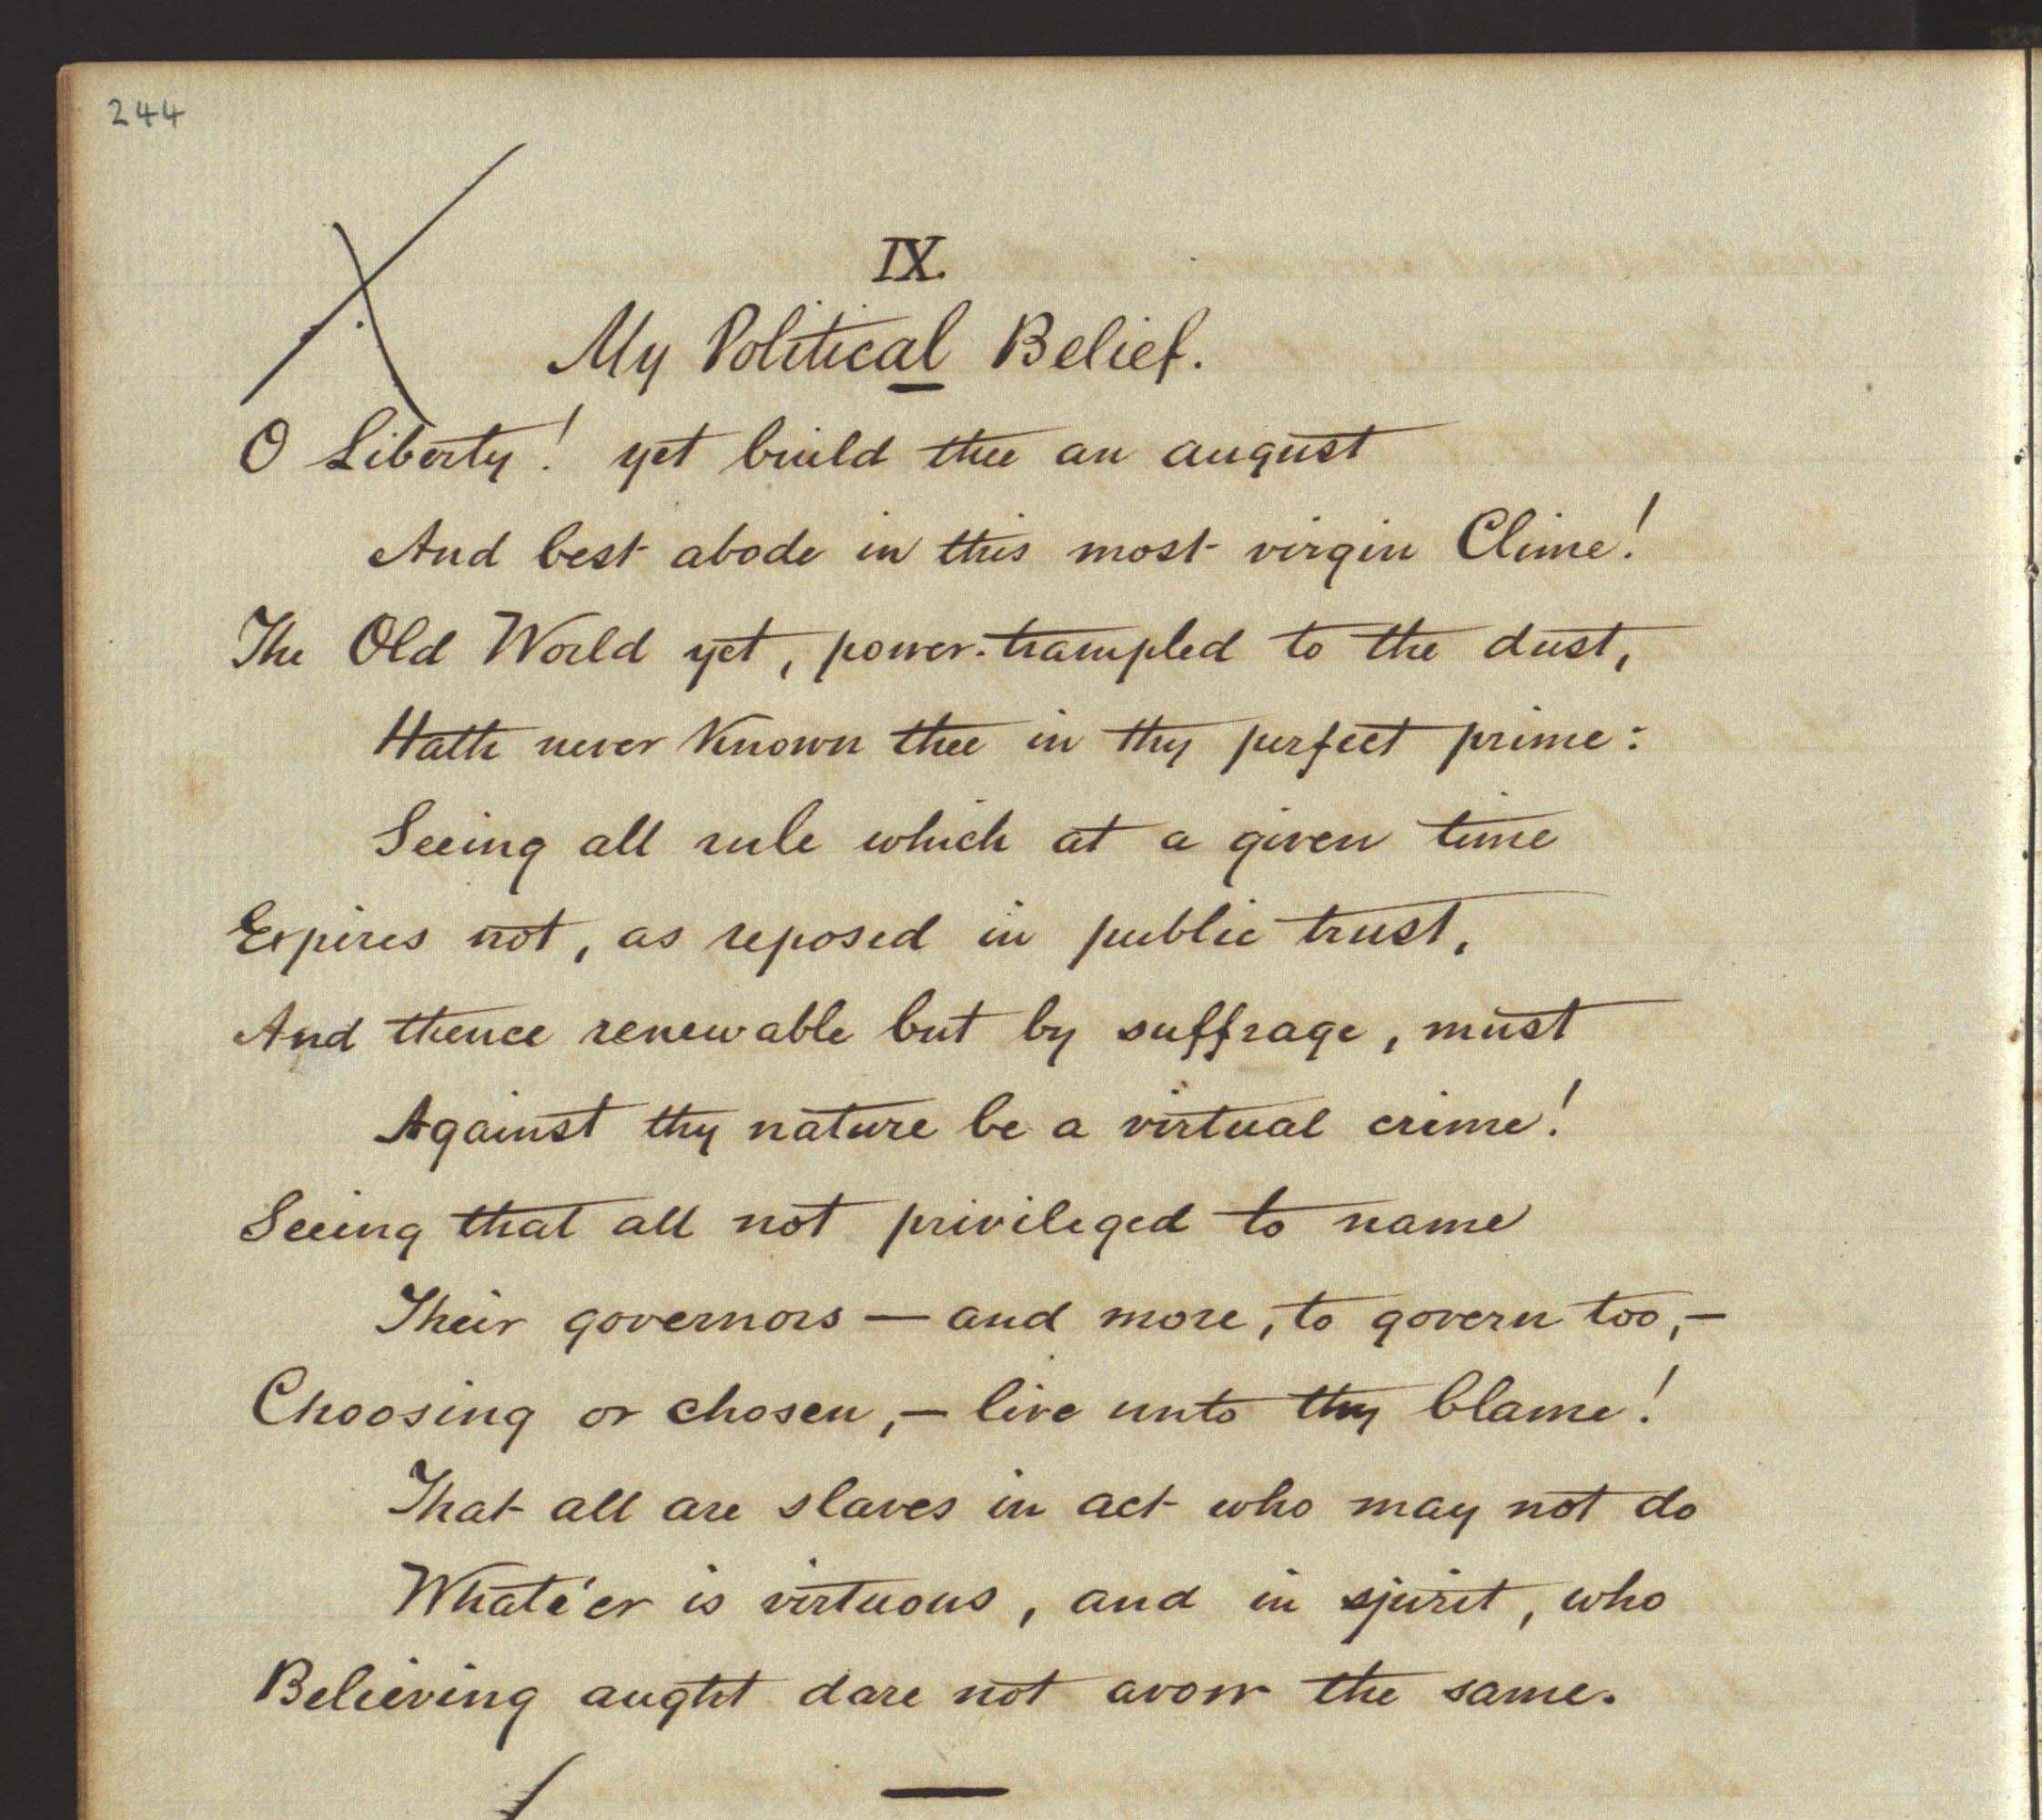 244
IX.
My Political Belief.
O Liberty! yet build thee an august
And best abode in this most virgin Clime!
The Old World yet, power-trampled to the dust,
Hath never known thee in thy perfect prime:
Seeing all rule which at a given time
Expires not, as reposed in public trust,
And thence renewable but by suffrage, must
Against thy nature be a virtual crime!
Seeing that all not privileged to name
Their governors — and more, to govern too,—
Choosing or chosen,— live unto thy blame!
That all are slaves in act who may not do
Whate'er is virtuous, and in spirit, who
Believing aught dare not avow the same.